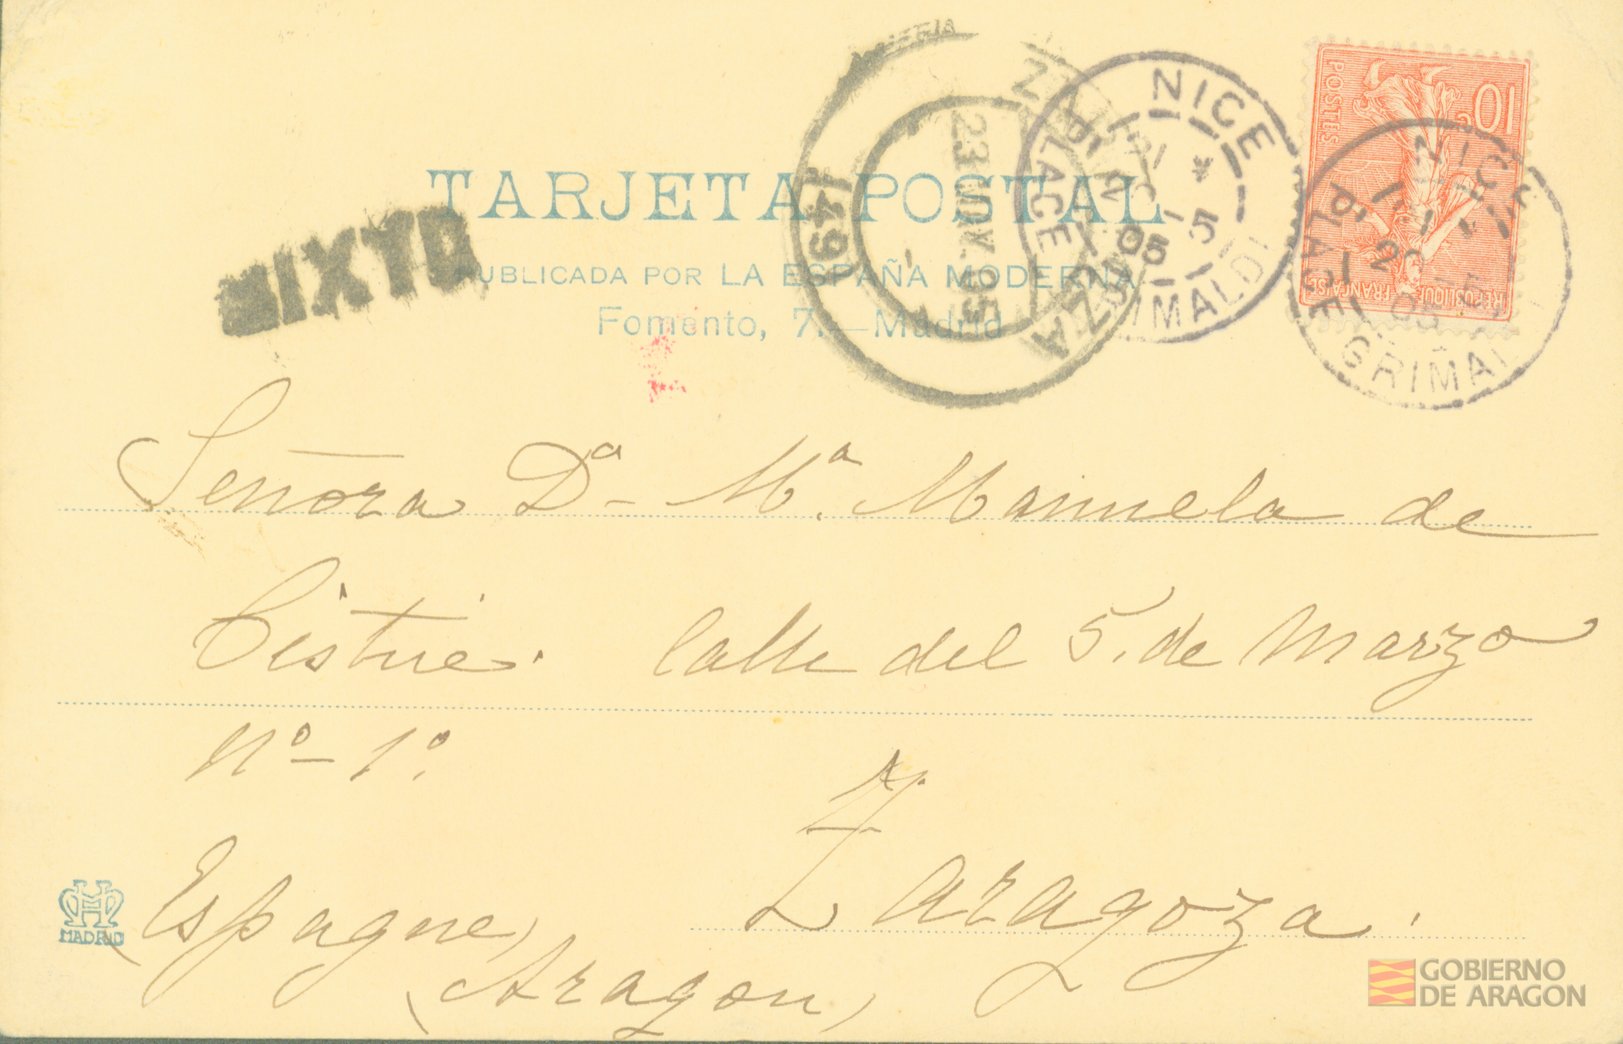 TARJETA POSTAL
PUBLICADA POR LA ESPAÑA MODERNA
Fomento, 7.—Madrid
MIXTO
1491
23 NOV. 05
ZARAGOZA
NICE
PLACE GRIMALDI
05
NICE
PLACE GRIMALDI
05
10c
POSTES
REPUBLIQUE FRANÇAISE
Señora Dª Mª. Manuela de
Cistué. Calle del 5. de Marzo
Nº 1º.
Zaragoza.
(Espagne)
(Aragon)
MADRID
GOBIERNO
DE ARAGON